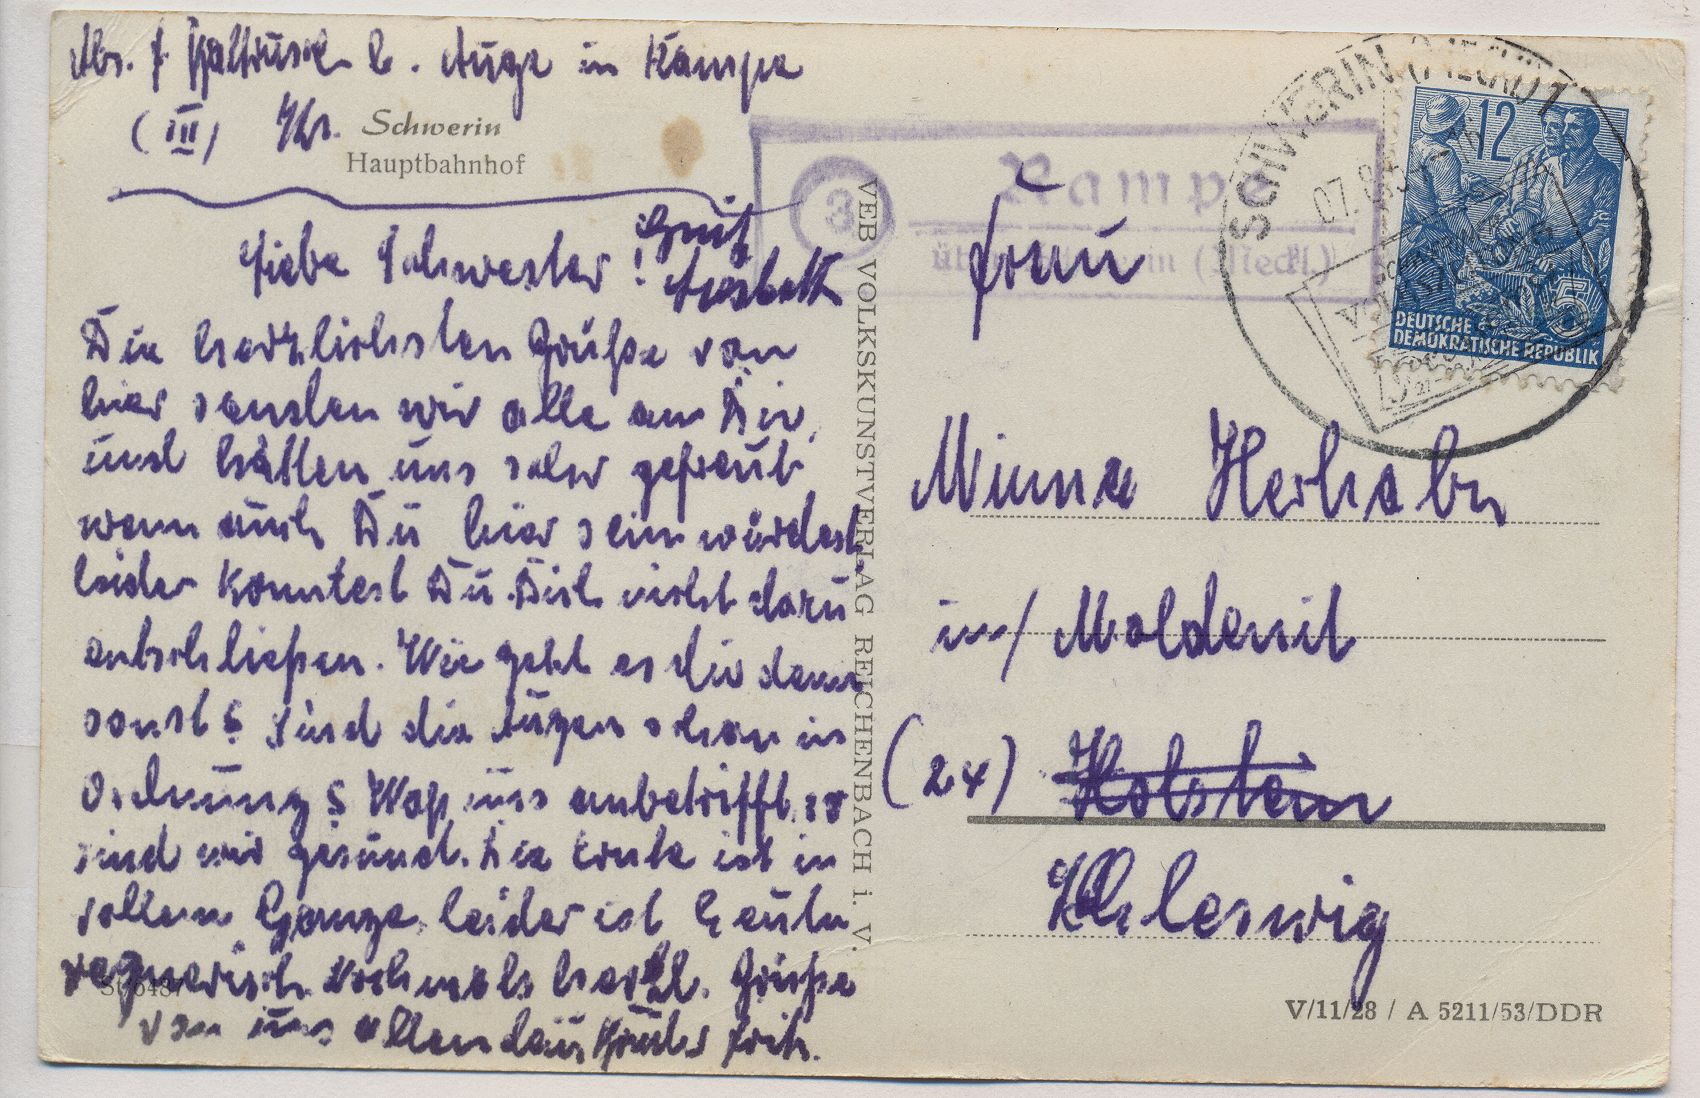 Abs. f. b. Auge in Rampe
(III)
Schwerin
Hauptbahnhof
Liebe Schwester!
Gruß
Liesbeth
Die herzlichsten Grüße von
hier senden wir alle an Dir,
und hätten uns sehr gefreut
wenn auch Du hier sein würdest,
leider konntest Du Dich nicht dazu
entschließen. Wie geht es dir denn
sonst? Sind die Augen schon in
Ordnung? Waß uns anbetrifft, so
sind wir gesund. Die Ernte ist in
vollem Gange, leider ist heute
regnerisch. Nochmals herzl. Grüße
von uns allen dein Fritz.
St 6437
VEB VOLKSKUNSTVERLAG REICHENBACH i. V.
3
Rampe
über Schwerin (Meckl.)
SCHWERIN (MECKL) 1
12
5
DEUTSCHE
DEMOKRATISCHE REPUBLIK
Frau
Minna
in/ Moldenit
(24) Holstein
Schleswig
V/11/28 / A 5211/53/DDR